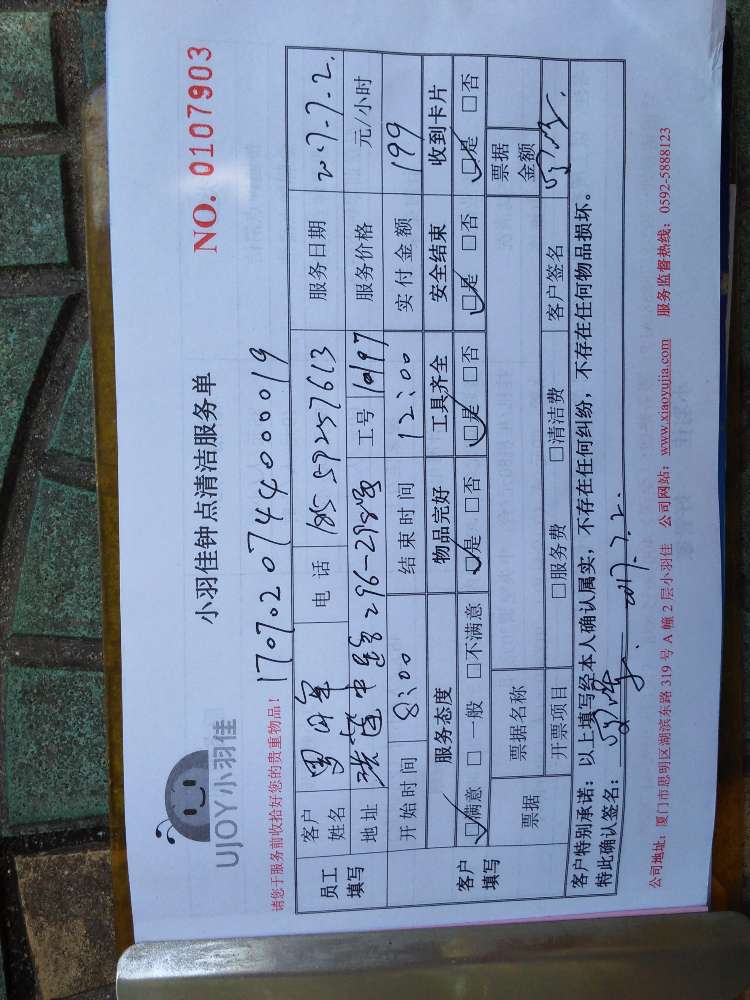 UJOY小羽佳
小羽佳钟点清洁服务单
NO. 0107903
请您于服务前收拾好您的贵重物品！
1707020744000019
员工填写
客户姓名
电话 18559257613
服务日期 2017.7.2.
地址 296-298号
工号
服务价格 元/小时
开始时间 8:00
结束时间 12:00
实付金额 199
客户填写
服务态度 物品完好 工具齐全 安全结束 收到卡片
☑满意 □一般 □不满意 ☑是 □否 ☑是 □否 ☑是 □否 ☑是 □否
票据 票据名称 票据金额
开票项目 □服务费 □清洁费 客户签名
客户特别承诺：以上填写经本人确认属实，不存在任何纠纷，不存在任何物品损坏。
特此确认签名： 2017.7.2.
公司地址：厦门市思明区湖滨东路319号A幢2层小羽佳 公司网站：www.xiaoyujia.com 服务监督热线：0592-5888123